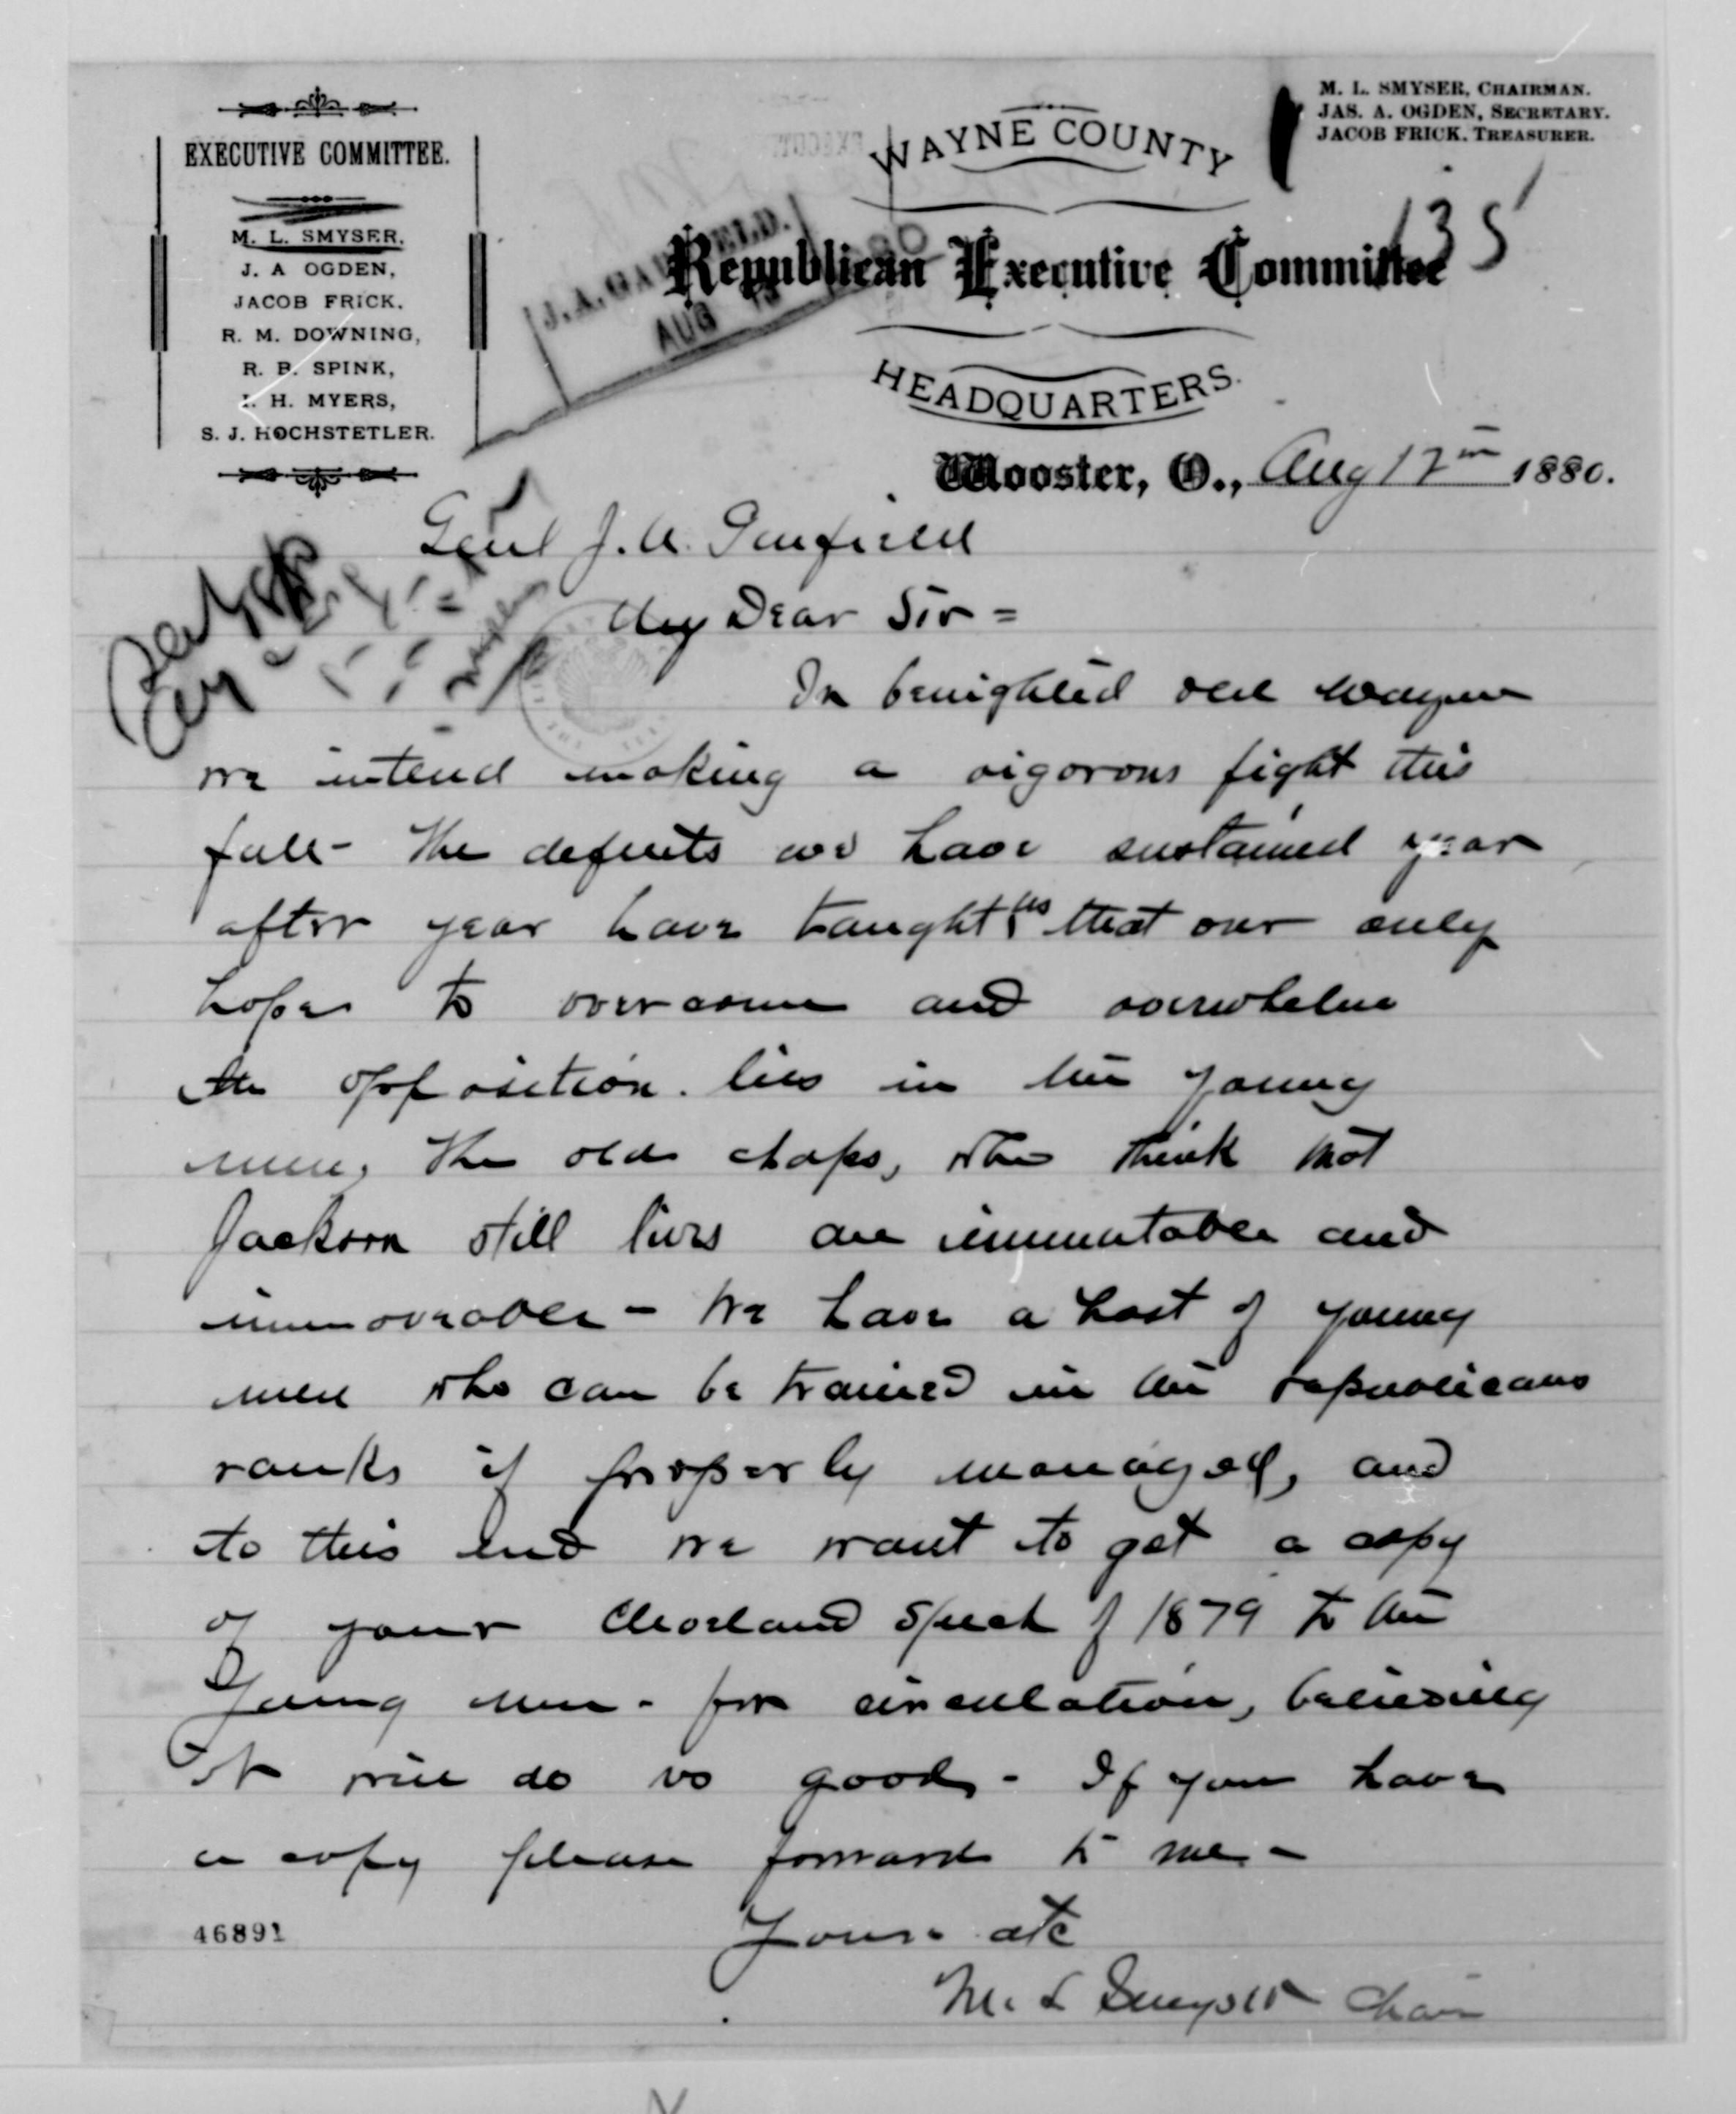 EXECUTIVE COMMITTEE.
M. L. SMYSER,
J. A OGDEN,
JACOB FRICK.
R. M. DOWNING,
R. B. SPINK,
I. H. MYERS,
S. J. HOCHSTETLER.
WAYNE COUNTY
Republican Executive Committee
HEADQUARTERS.
M. L. SMYSER, CHAIRMAN.
JAS. A. OGDEN, SECRETARY.
JACOB FRICK. TREASURER.
135
J. A. GARFIELD.
AUG 1880
Wooster, O., Aug 17th 1880.
Genl J. A. Garfield
My Dear Sir =
In benighted old Wayne
we intend making a vigorous fight this
fall - The defeats we have sustained year
after year have taught us that our only
hope to overcome and overwhelm
the opposition. lies in the young
men, the old chaps, who think that
Jackson still lives are immutable and
immoveable - We have a host of young
men who can be trained in the republicans
ranks if properly managed, and
to this end we want to get a copy
of your Cleveland speech of 1879 to the
Young men - for circulation, believing
it will do us good - If you have
a copy please forward to me -
Yours etc
M. L Smyser Chair
46891